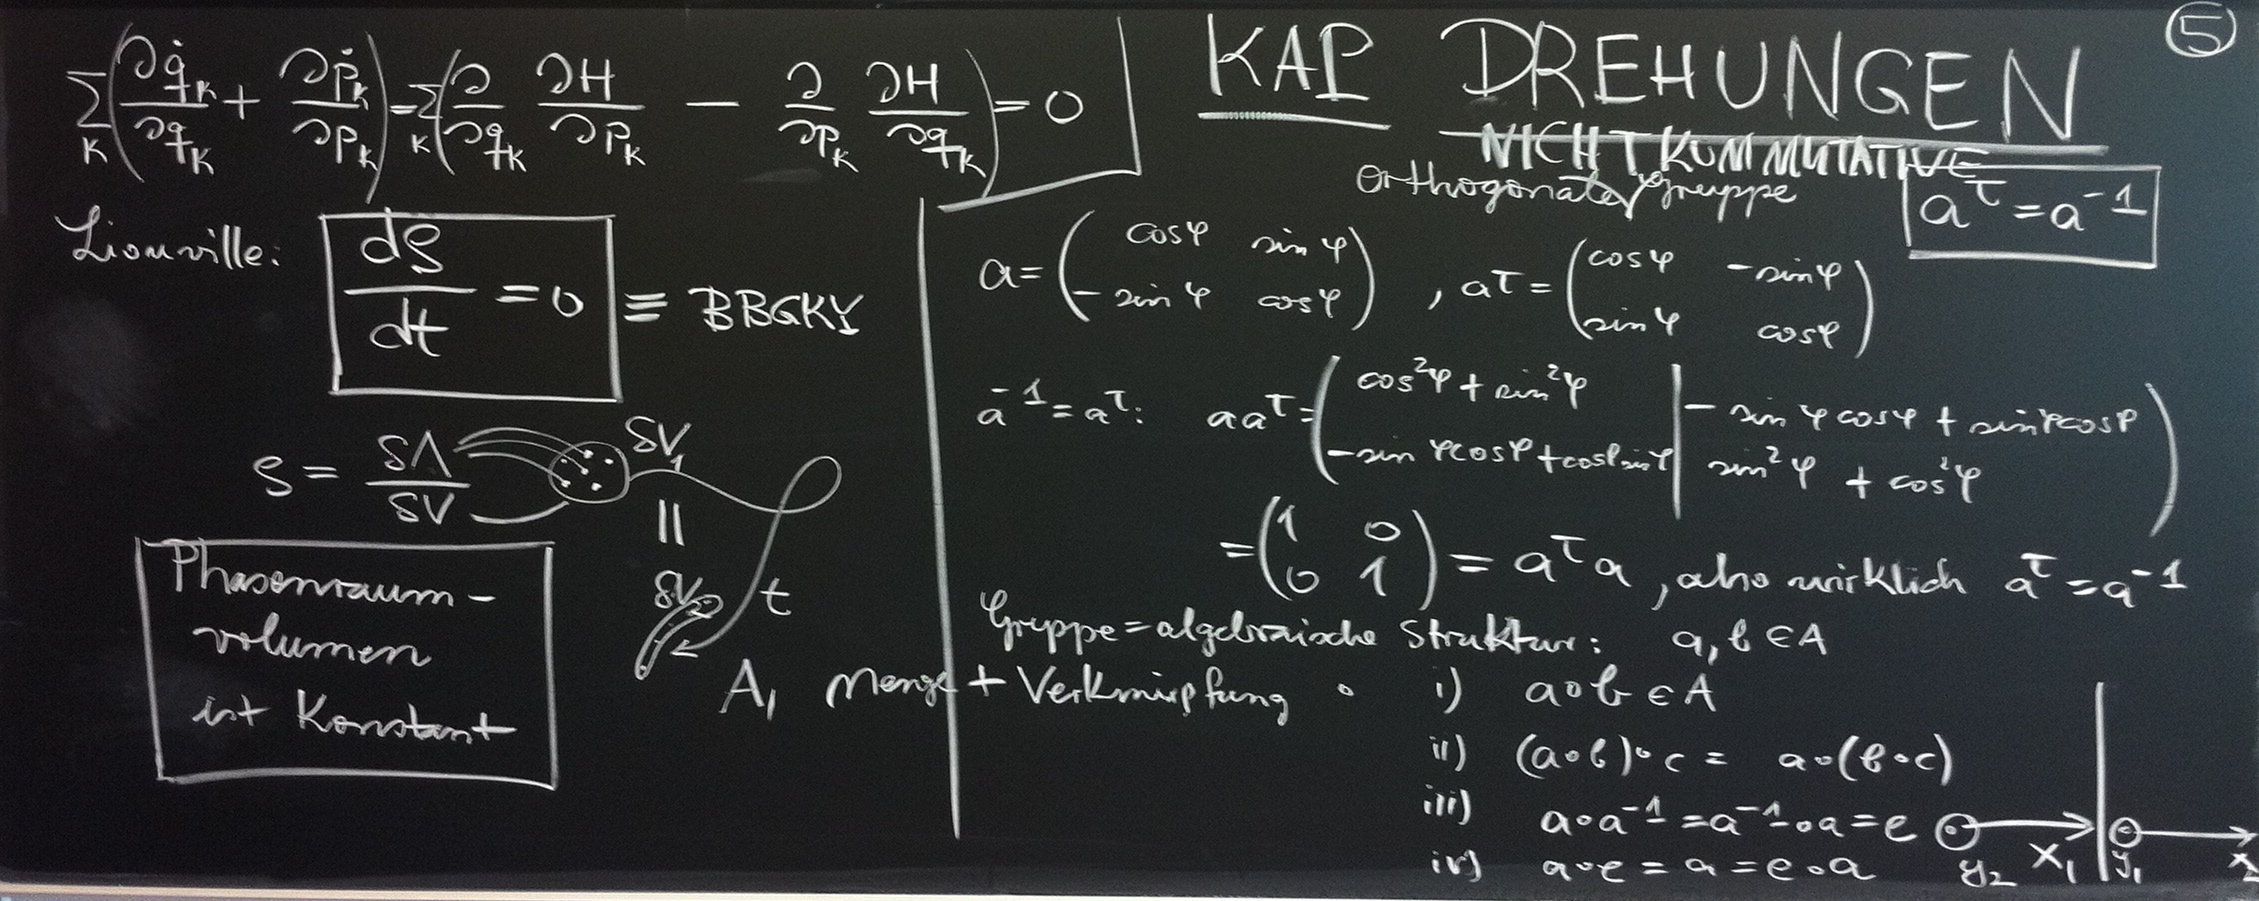 ∑_K (∂q̇_K/∂q_K + ∂ṗ_K/∂p_K) = ∑_K (∂/∂q_K ∂H/∂p_K − ∂/∂p_K ∂H/∂q_K) = 0
Liouville: dρ/dt = 0 ≡ BBGKY
ρ = δΛ/δV
δV₁
||
δV₂ t
Phasenraum-
volumen
ist Konstant
⑤
KAP DREHUNGEN
NICHT KUMMUTATIVE
Orthogonale Gruppe
aᵀ = a⁻¹
a = (cosφ sinφ; −sinφ cosφ), aᵀ = (cosφ −sinφ; sinφ cosφ)
a⁻¹ = aᵀ: aaᵀ = (cos²φ + sin²φ | −sinφcosφ + sinφcosφ; −sinφcosφ + cosφsinφ | sin²φ + cos²φ)
= (1 0; 0 1) = aᵀa, also wirklich aᵀ = a⁻¹
Gruppe = algebraische Struktur: a, b ∈ A
A, Menge + Verknüpfung ∘ i) a∘b ∈ A
ii) (a∘b)∘c = a∘(b∘c)
iii) a∘a⁻¹ = a⁻¹∘a = e
iv) a∘e = a = e∘a
y₂ x₁ y₁ x₂